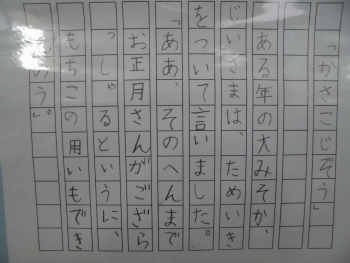 「かさこじぞう」
ある年の大みそか、
じいさまは、ためいき
をついて言いました。
「ああ、そのへんまで
お正月さんがござら
っしゃるというに、
もちこの用いもでき
んのう。」